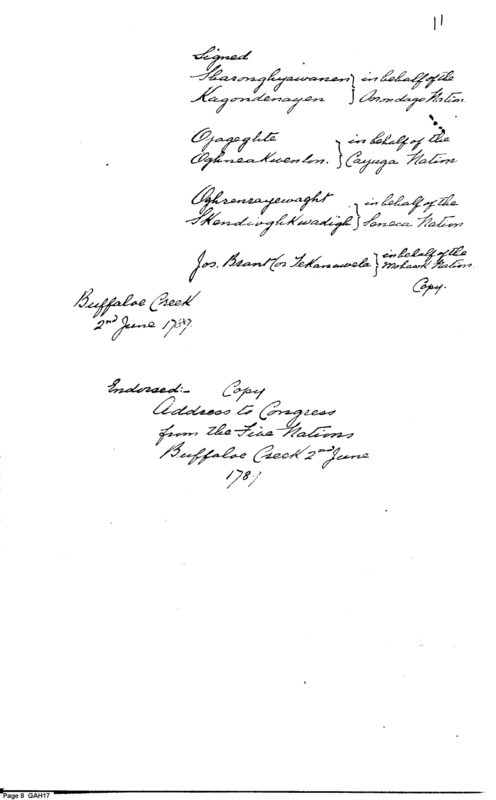 11
Signed
Tharonghyawanen } in behalf of the
Kagondenayen } Onondago Nation
Ojageghte } in behalf of the
Oghneakwenton. } Cayuga Nation
Oghrenrayewaght } in behalf of the
Skendioghkwadigh } Seneca Nation
Jos. Brant (or Tekanawela } in behalf of the
Mohawk Nation.
Copy.
Buffaloe Creek
2nd June 1789.
Endorsed:- Copy
Address to Congress
from the Five Nations
Buffaloe Creek 2nd June
178
Page 8 GAH17